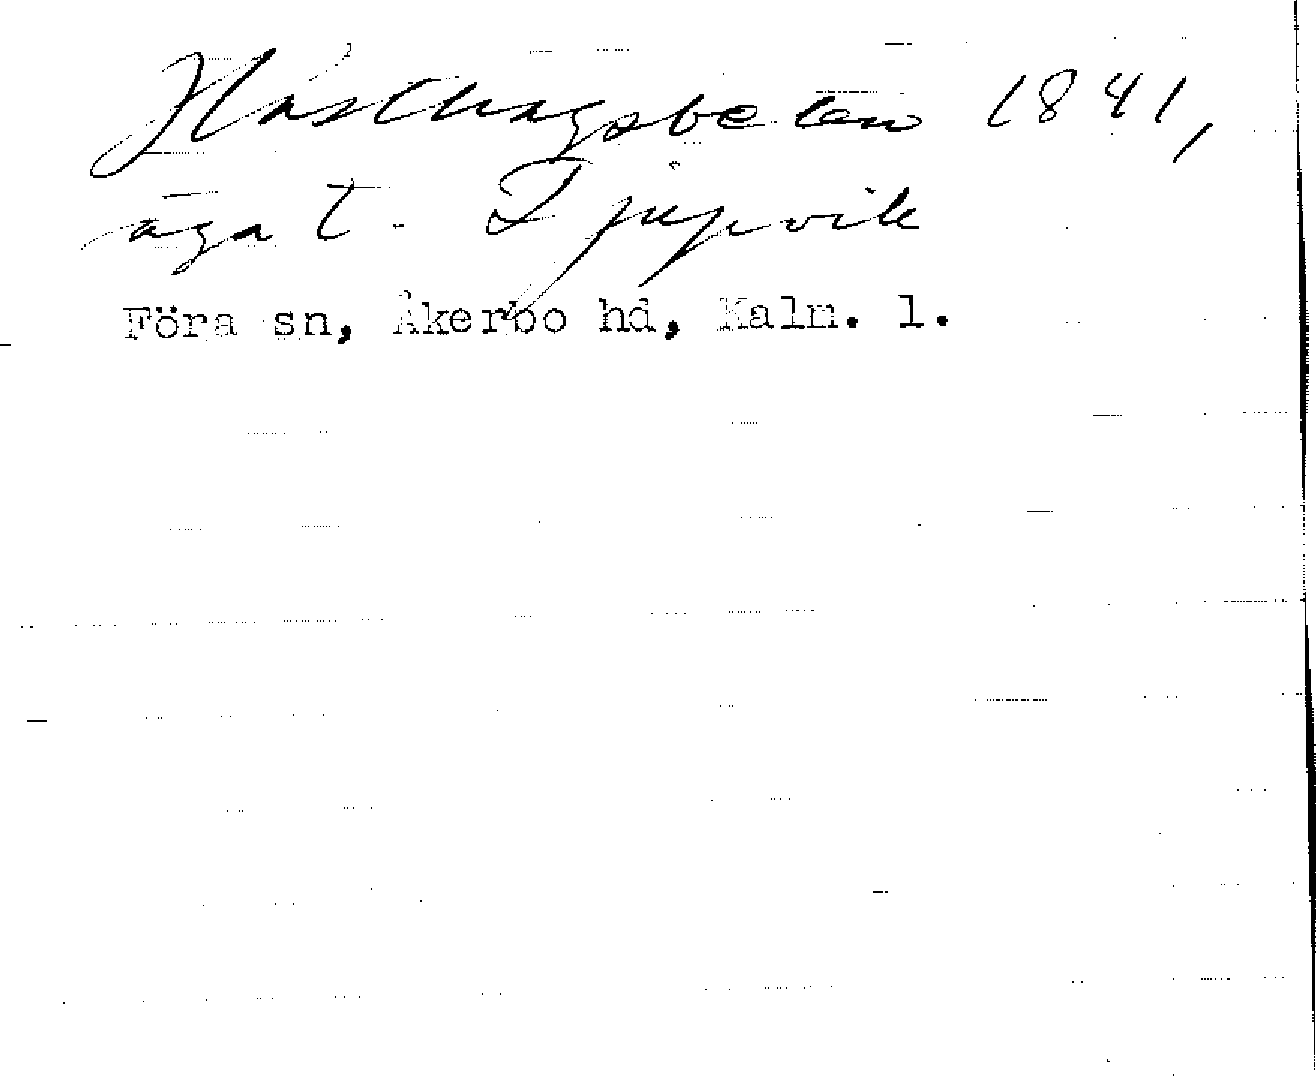 Hästhagsbeten 1841,
äga t. Djupvik
Föra sn, Åkerbo hd, Kalm. l.